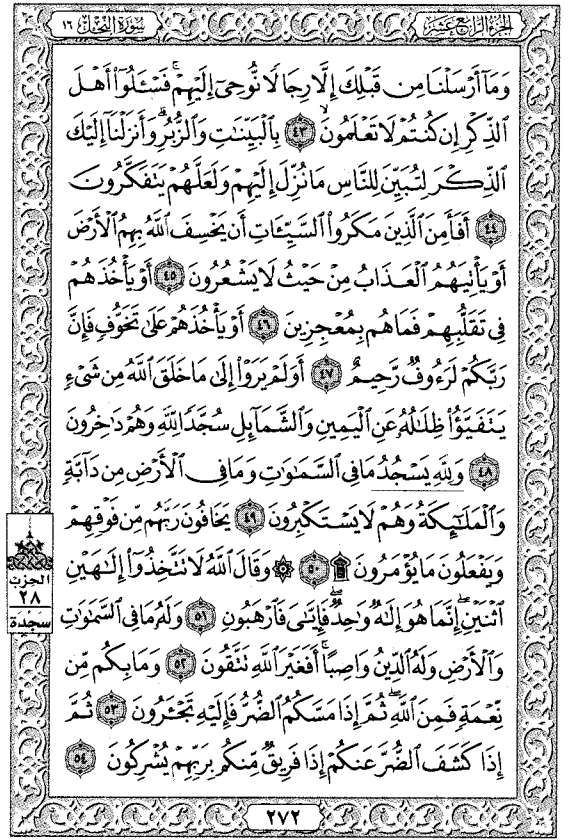 الجزء الرابع عشر
سورة النحل ١٦
وَمَآ أَرْسَلْنَا مِن قَبْلِكَ إِلَّا رِجَالًا نُّوحِىٓ إِلَيْهِمْ ۚ فَسْـَٔلُوٓا۟ أَهْلَ
ٱلذِّكْرِ إِن كُنتُمْ لَا تَعْلَمُونَ ۙ ٤٣ بِٱلْبَيِّنَـٰتِ وَٱلزُّبُرِ ۗ وَأَنزَلْنَآ إِلَيْكَ
ٱلذِّكْرَ لِتُبَيِّنَ لِلنَّاسِ مَا نُزِّلَ إِلَيْهِمْ وَلَعَلَّهُمْ يَتَفَكَّرُونَ
٤٤ أَفَأَمِنَ ٱلَّذِينَ مَكَرُوا۟ ٱلسَّيِّـَٔاتِ أَن يَخْسِفَ ٱللَّهُ بِهِمُ ٱلْأَرْضَ
أَوْ يَأْتِيَهُمُ ٱلْعَذَابُ مِنْ حَيْثُ لَا يَشْعُرُونَ ٤٥ أَوْ يَأْخُذَهُمْ
فِى تَقَلُّبِهِمْ فَمَا هُم بِمُعْجِزِينَ ٤٦ أَوْ يَأْخُذَهُمْ عَلَىٰ تَخَوُّفٍ فَإِنَّ
رَبَّكُمْ لَرَءُوفٌ رَّحِيمٌ ٤٧ أَوَلَمْ يَرَوْا۟ إِلَىٰ مَا خَلَقَ ٱللَّهُ مِن شَىْءٍ
يَتَفَيَّؤُا۟ ظِلَـٰلُهُۥ عَنِ ٱلْيَمِينِ وَٱلشَّمَآئِلِ سُجَّدًا لِّلَّهِ وَهُمْ دَٰخِرُونَ
٤٨ وَلِلَّهِ يَسْجُدُ مَا فِى ٱلسَّمَـٰوَٰتِ وَمَا فِى ٱلْأَرْضِ مِن دَآبَّةٍ
وَٱلْمَلَـٰٓئِكَةُ وَهُمْ لَا يَسْتَكْبِرُونَ ٤٩ يَخَافُونَ رَبَّهُم مِّن فَوْقِهِمْ
وَيَفْعَلُونَ مَا يُؤْمَرُونَ ۩ ٥٠ ۞ وَقَالَ ٱللَّهُ لَا تَتَّخِذُوٓا۟ إِلَـٰهَيْنِ
ٱثْنَيْنِ ۖ إِنَّمَا هُوَ إِلَـٰهٌ وَٰحِدٌ ۖ فَإِيَّـٰىَ فَٱرْهَبُونِ ٥١ وَلَهُۥ مَا فِى ٱلسَّمَـٰوَٰتِ
وَٱلْأَرْضِ وَلَهُ ٱلدِّينُ وَاصِبًا ۚ أَفَغَيْرَ ٱللَّهِ تَتَّقُونَ ٥٢ وَمَا بِكُم مِّن
نِّعْمَةٍ فَمِنَ ٱللَّهِ ۖ ثُمَّ إِذَا مَسَّكُمُ ٱلضُّرُّ فَإِلَيْهِ تَجْـَٔرُونَ ٥٣ ثُمَّ
إِذَا كَشَفَ ٱلضُّرَّ عَنكُمْ إِذَا فَرِيقٌ مِّنكُم بِرَبِّهِمْ يُشْرِكُونَ ٥٤
الحزب
٢٨
سجدة
٢٧٢